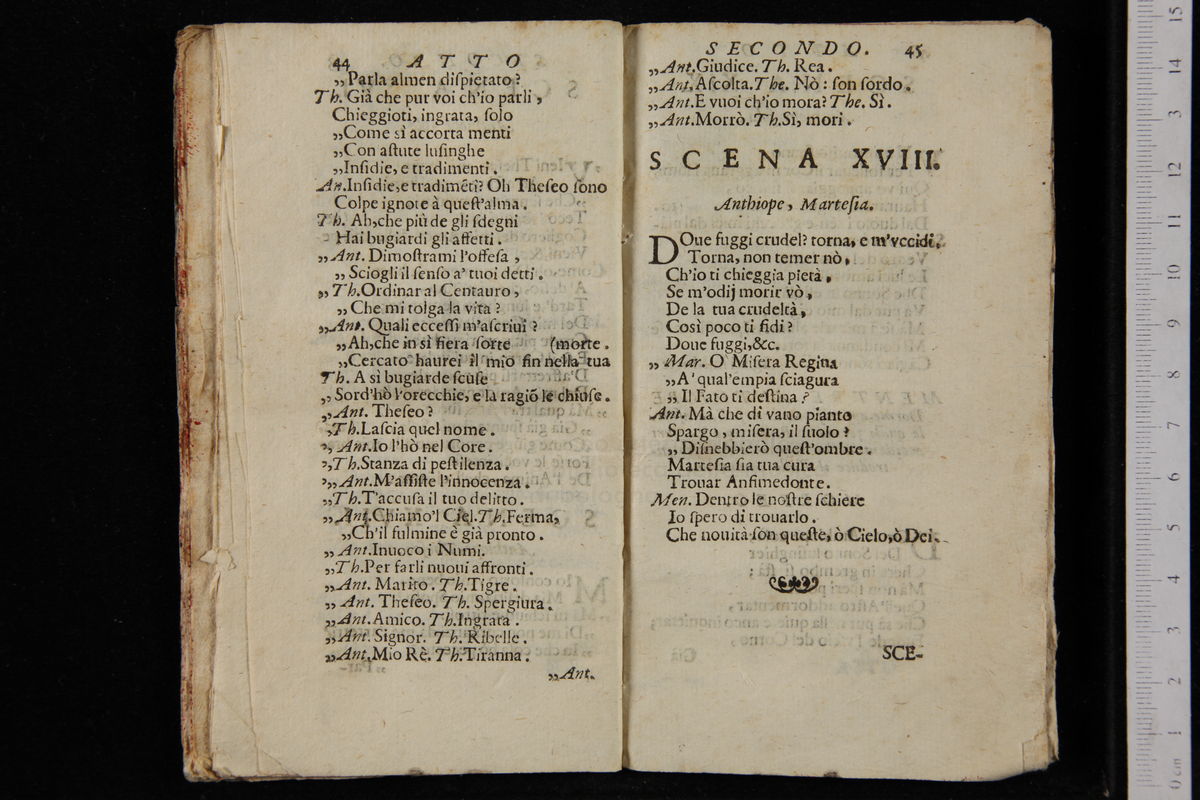 44 ATTO
„Parla almen diſpietato?
Th. Già che pur voi ch'io parli,
Chieggioti, ingrata, ſolo
„Come sì accorta menti
„Con aſtute luſinghe
„Inſidie, e tradimenti.
An.Inſidie,e tradimēti? Oh Theſeo ſono
Colpe ignote à queſt'alma.
Th. Ah,che più de gli ſdegni
Hai bugiardi gli affetti.
„Ant. Dimoſtrami l'offeſa,
„Sciogli il ſenſo a' tuoi detti.
„Th.Ordinar al Centauro,
„Che mi tolga la vita?
„Ant. Quali ecceſſi m'aſcriui?
„Ah,che in sì fiera ſorte (morte.
„Cercato haurei il mio fin nella tua
Th. A sì bugiarde ſcuſe
„Sord'hò l'orecchie, e la ragiō le chiuſe.
„Ant. Theſeo?
„Th.Laſcia quel nome.
„Ant.Io l'hò nel Core.
„Th.Stanza di peſtilenza.
„Ant.M'aſſiſte l'innocenza.
„Th.T'accuſa il tuo delitto.
„Ant.Chiamo'l Ciel.Th.Ferma,
„Ch'il fulmine è già pronto.
„Ant.Inuoco i Numi.
„Th.Per farli nuoui affronti.
„Ant. Marito. Th.Tigre.
„Ant. Theſeo. Th. Spergiura.
„Ant.Amico. Th.Ingrata.
„Ant. Signor. Th. Ribelle.
„Ant.Mio Rè. Th.Tiranna.
„Ant.
SECONDO. 45
„Ant.Giudice. Th. Rea.
„Ant.Aſcolta.The. Nò: ſon ſordo.
„Ant.E vuoi ch'io mora? The. Sì.
„Ant.Morrò. Th.Sì, mori.
SCENA XVIII.
Anthiope, Marteſia.
DOue fuggi crudel? torna, e m'vccidi,
Torna, non temer nò,
Ch'io ti chieggia pietà,
Se m'odij morir vò,
De la tua crudeltà,
Così poco ti fidi?
Doue fuggi,&c.
„Mar. O Miſera Regina
„A' qual'empia ſciagura
„Il Fato ti deſtina?
Ant. Mà che di vano pianto
Spargo, miſera, il ſuolo?
„Diſnebbierò queſt'ombre.
Marteſia ſia tua cura
Trouar Anfimedonte.
Men. Dentro le noſtre ſchiere
Io ſpero di trouarlo.
Che nouità ſon queſte, ò Cielo,ò Dei.
SCE-